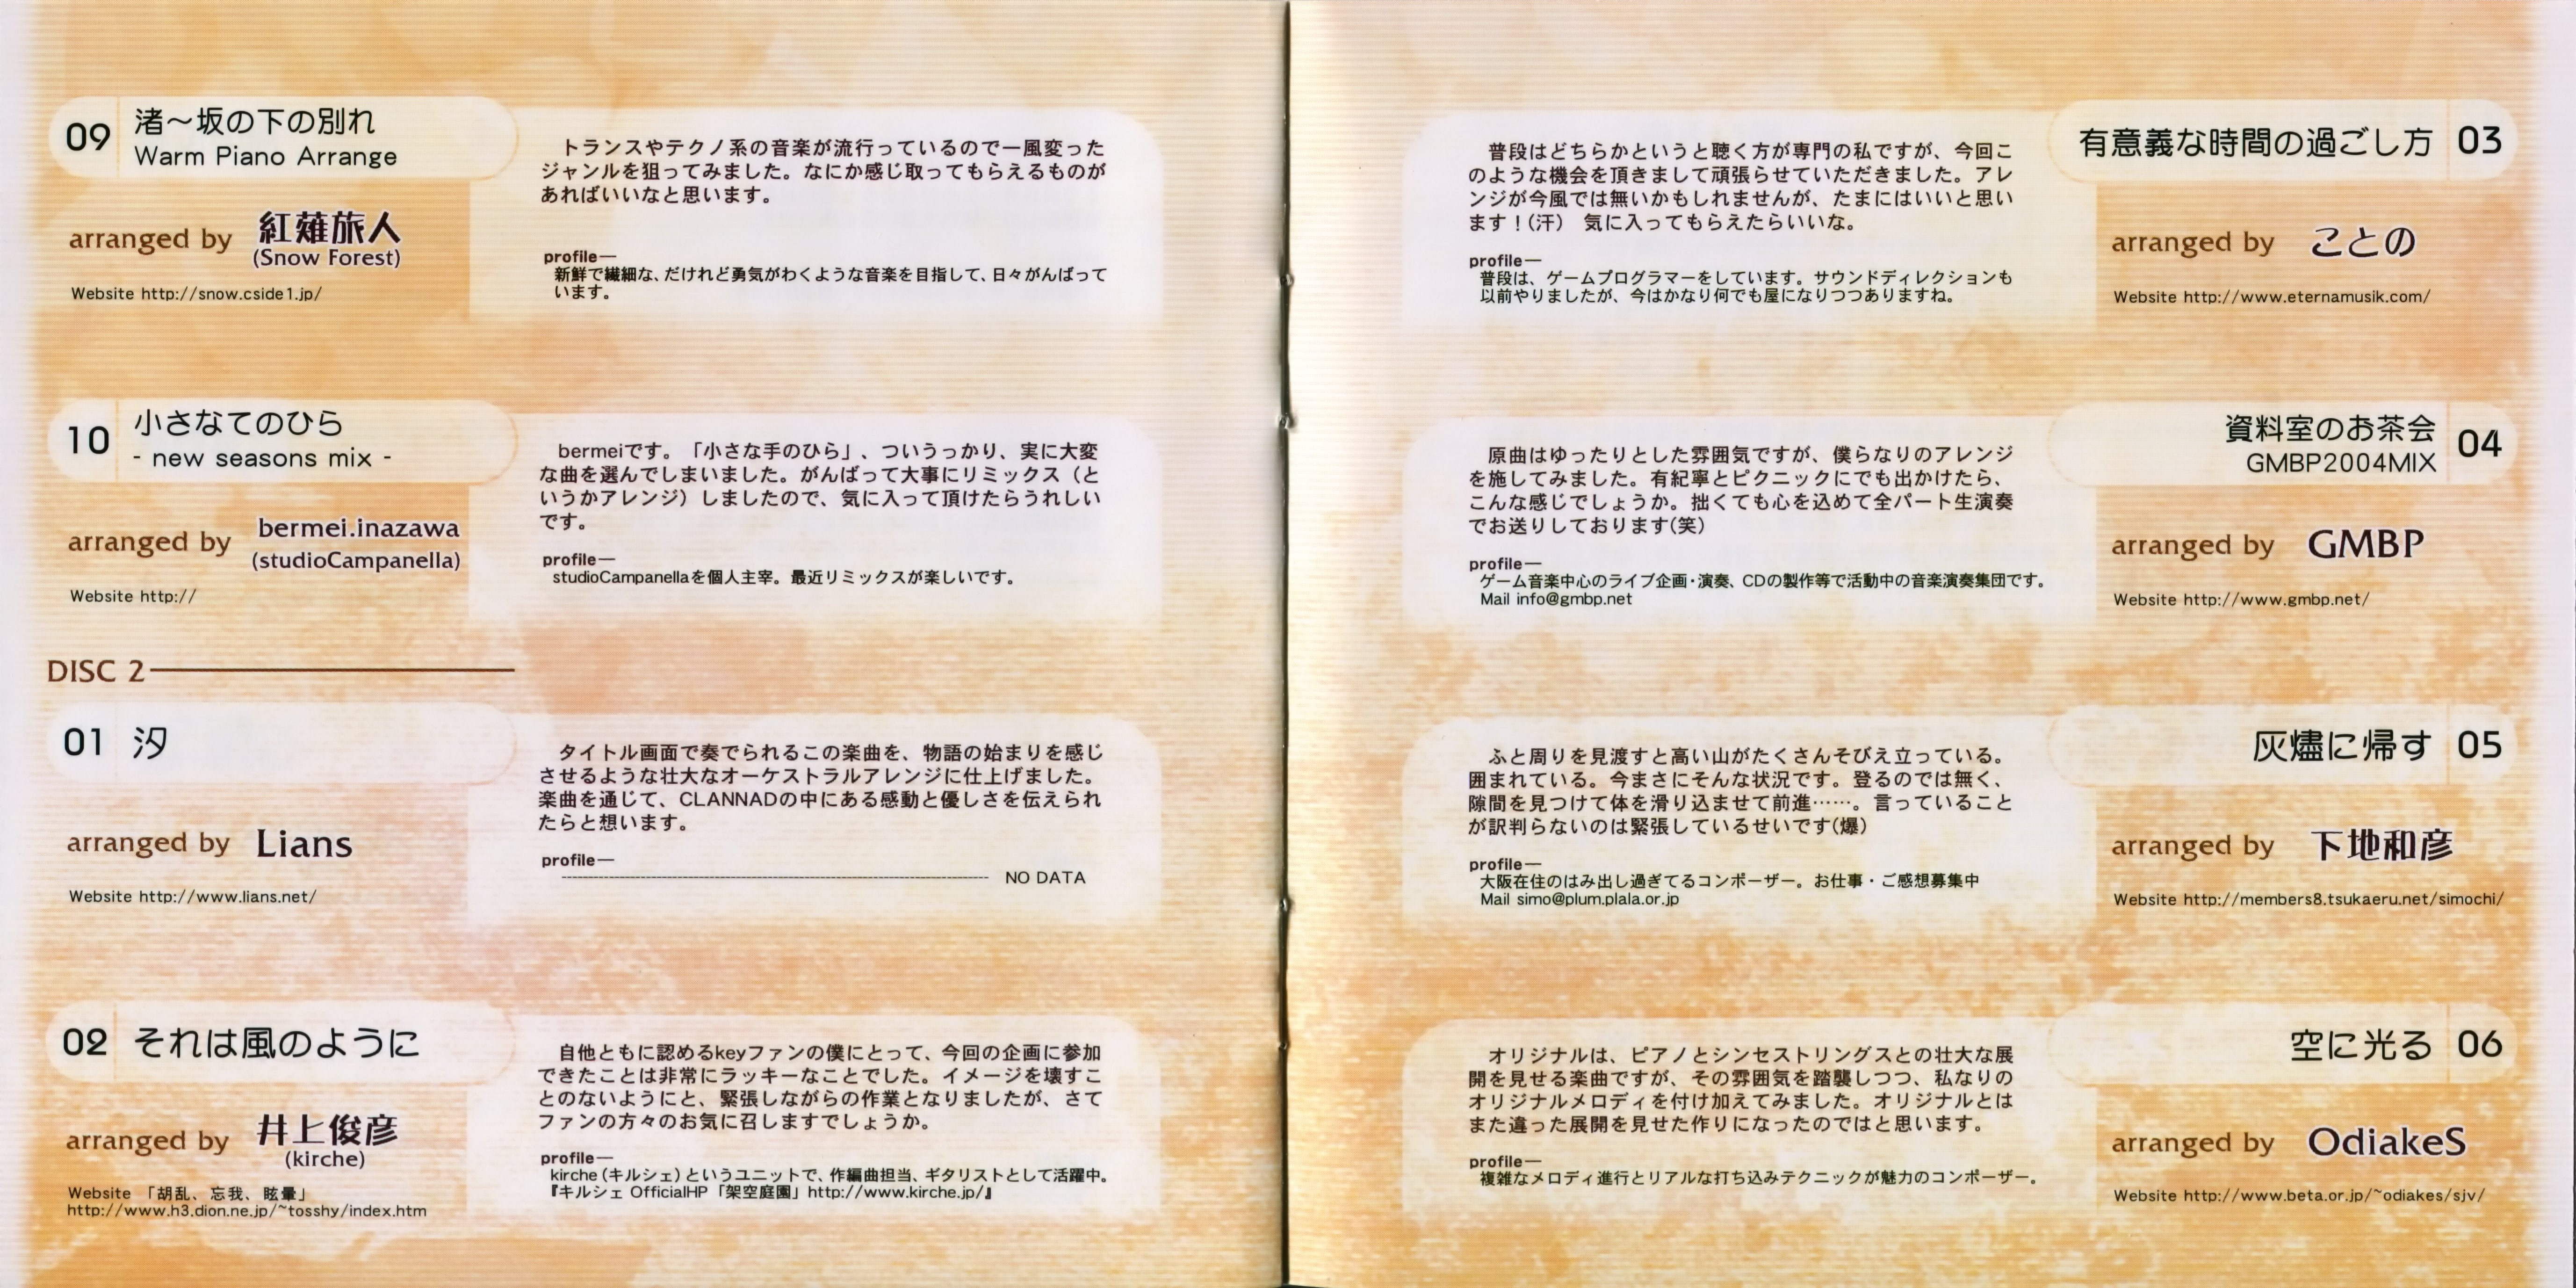 09 渚～坂の下の別れ
Warm Piano Arrange
arranged by 紅薙旅人
(Snow Forest)
Website http://snow.cside1.jp/
トランスやテクノ系の音楽が流行っているので一風変った
ジャンルを狙ってみました。なにか感じ取ってもらえるものが
あればいいなと思います。
profile—
新鮮で繊細な、だけれど勇気がわくような音楽を目指して、日々がんばって
います。
10 小さなてのひら
- new seasons mix -
arranged by bermei.inazawa
(studioCampanella)
Website http://
bermeiです。「小さな手のひら」、ついうっかり、実に大変
な曲を選んでしまいました。がんばって大事にリミックス（と
いうかアレンジ）しましたので、気に入って頂けたらうれしい
です。
profile—
studioCampanellaを個人主宰。最近リミックスが楽しいです。
DISC 2
01 汐
arranged by Lians
Website http://www.lians.net/
タイトル画面で奏でられるこの楽曲を、物語の始まりを感じ
させるような壮大なオーケストラルアレンジに仕上げました。
楽曲を通じて、CLANNADの中にある感動と優しさを伝えられ
たらと想います。
profile—
NO DATA
02 それは風のように
arranged by 井上俊彦
(kirche)
Website 「胡乱、忘我、眩暈」
http://www.h3.dion.ne.jp/~tosshy/index.htm
自他ともに認めるkeyファンの僕にとって、今回の企画に参加
できたことは非常にラッキーなことでした。イメージを壊すこ
とのないようにと、緊張しながらの作業となりましたが、さて
ファンの方々のお気に召しますでしょうか。
profile—
kirche（キルシェ）というユニットで、作編曲担当、ギタリストとして活躍中。
『キルシェ OfficialHP「架空庭園」http://www.kirche.jp/』
有意義な時間の過ごし方 03
arranged by ことの
Website http://www.eternamusik.com/
普段はどちらかというと聴く方が専門の私ですが、今回こ
のような機会を頂きまして頑張らせていただきました。アレ
ンジが今風では無いかもしれませんが、たまにはいいと思い
ます！(汗)　気に入ってもらえたらいいな。
profile—
普段は、ゲームプログラマーをしています。サウンドディレクションも
以前やりましたが、今はかなり何でも屋になりつつありますね。
資料室のお茶会 04
GMBP2004MIX
arranged by GMBP
Website http://www.gmbp.net/
原曲はゆったりとした雰囲気ですが、僕らなりのアレンジ
を施してみました。有紀寧とピクニックにでも出かけたら、
こんな感じでしょうか。拙くても心を込めて全パート生演奏
でお送りしております(笑)
profile—
ゲーム音楽中心のライブ企画・演奏、CDの製作等で活動中の音楽演奏集団です。
Mail info@gmbp.net
灰燼に帰す 05
arranged by 下地和彦
Website http://members8.tsukaeru.net/simochi/
ふと周りを見渡すと高い山がたくさんそびえ立っている。
囲まれている。今まさにそんな状況です。登るのでは無く、
隙間を見つけて体を滑り込ませて前進……。言っていること
が訳判らないのは緊張しているせいです(爆)
profile—
大阪在住のはみ出し過ぎてるコンポーザー。お仕事・ご感想募集中
Mail simo@plum.plala.or.jp
空に光る 06
arranged by OdiakeS
Website http://www.beta.or.jp/~odiakes/sjv/
オリジナルは、ピアノとシンセストリングスとの壮大な展
開を見せる楽曲ですが、その雰囲気を踏襲しつつ、私なりの
オリジナルメロディを付け加えてみました。オリジナルとは
また違った展開を見せた作りになったのではと思います。
profile—
複雑なメロディ進行とリアルな打ち込みテクニックが魅力のコンポーザー。